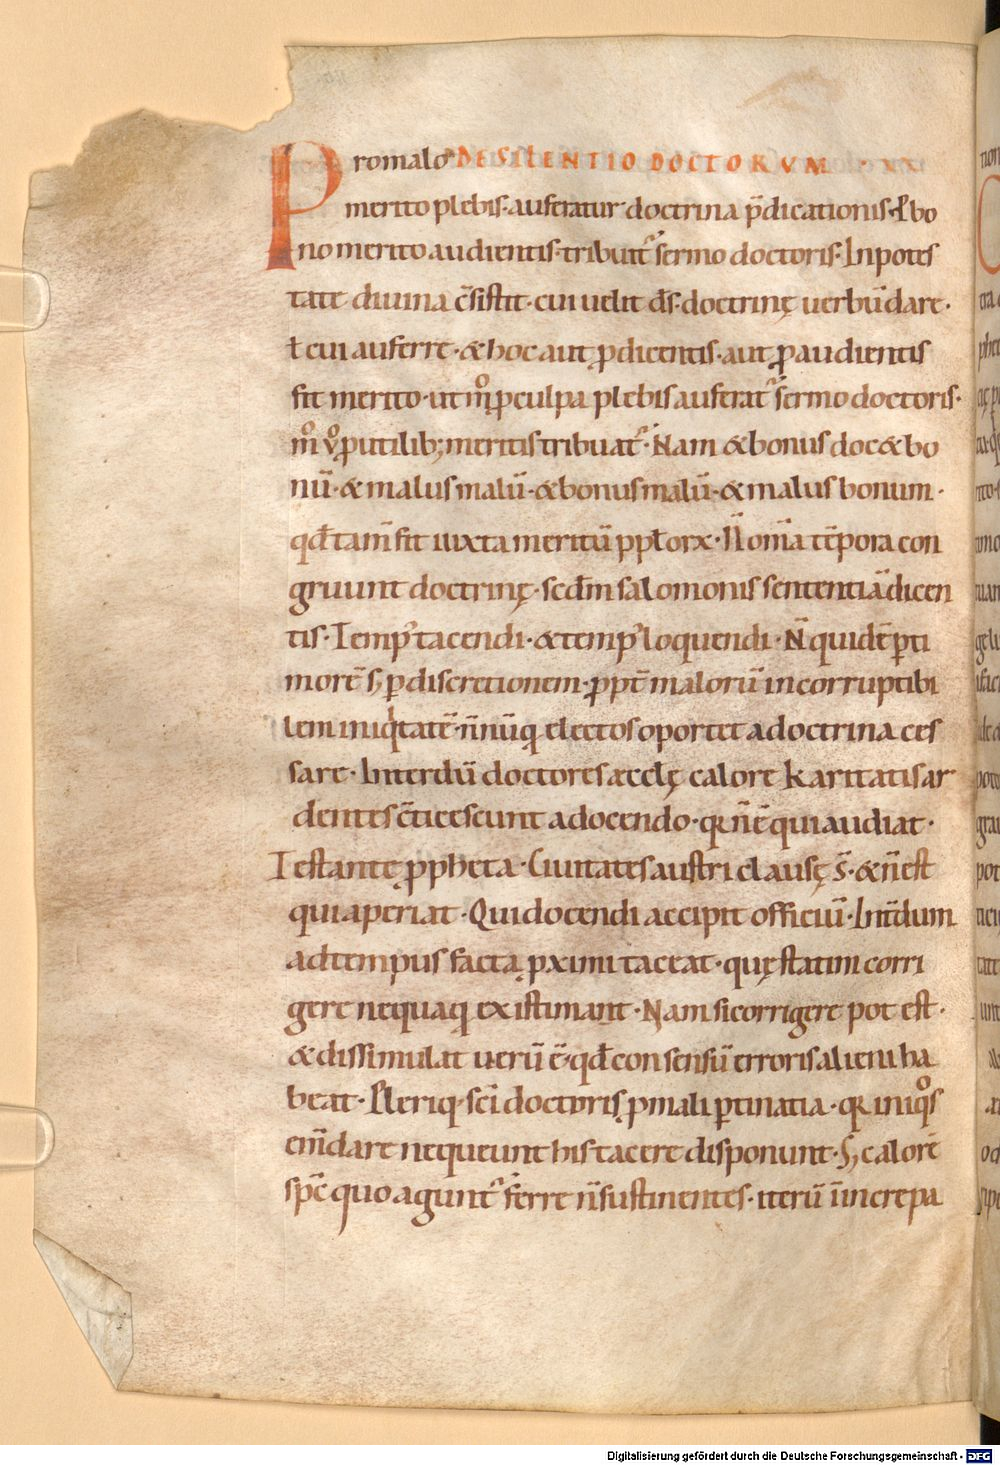 Promalo DE SILENTIO DOCTORVM · XX
merito plebis · auferatur doctrina p̄dicationis · Pbo
no merito audientis · tribuit͛ sermo doctoris · In potes
tate diuina c̄sistit · cui uelit d̄s · doctrinę uerbū dare ·
ł cui auferre · & hoc aut ꝓ dicentis · aut ꝓ audientis
fit merito · ut mͦ ꝓ culpa plebis auferat͛ sermo doctoris ·
mͦ vͦ ꝓ utilib; meritis tribuat͛ · Nam & bonus doc& bo
nū · & malus malū · & bonus malū · & malus bonum ·
qđ tam̄ fit iuxta meritū ppłorx · N̄ om̄a tēpora con
gruunt doctrinę · scđm salomonis sententiā dicen
tis · Temp᾽ tacendi · & temp᾽ loquendi · N̄ quidē ꝑ ti
morē s; ꝑ discretionem · ꝓpt̄ malorū incorruptibi
lem iniq̇tatē · n̄nūq̄ electos oportet a doctrina ces
sare · Interdū doctores æcclę calore karitatis ar
dentes c̄ticescunt a docendo · qr n̄ ē qui audiat ·
Testante ꝓpheta · Ciuitates austri clausę s̄ · & n̄ est
qui aperiat · Qui docendi accipit officiū · Int̄dum
ad tempus facta ꝓximi taceat · quę statim corri
gere nequaq̄ existimant · Nam si corrigere pot est ·
& dissimulat uerū ē · qđ consensū erroris alieni ha
beat · Pleriq · sc̄i doctoris ꝓ mali ꝑtinatia · qr iniqͦs
em̄dare nequeunt his tacere disponunt · S; calorē
sp̄c quo agunt͛ ferre n̄ sustinentes · iterū ī increpa
Digitalisierung gefördert durch die Deutsche Forschungsgemeinschaft - DFG